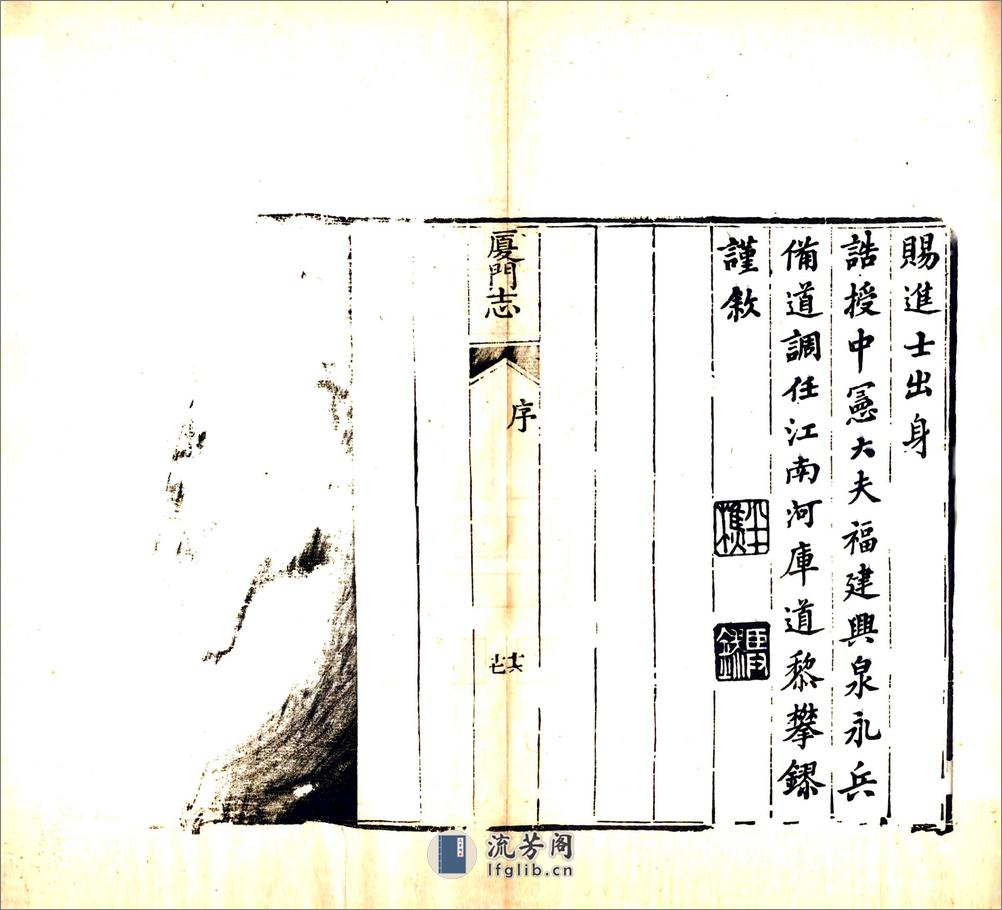 賜進士出身
誥授中憲大夫福建興泉永兵
備道調任江南河庫道黎攀鏐
謹敘
廈門志
序
流芳阁
lfglib.cn